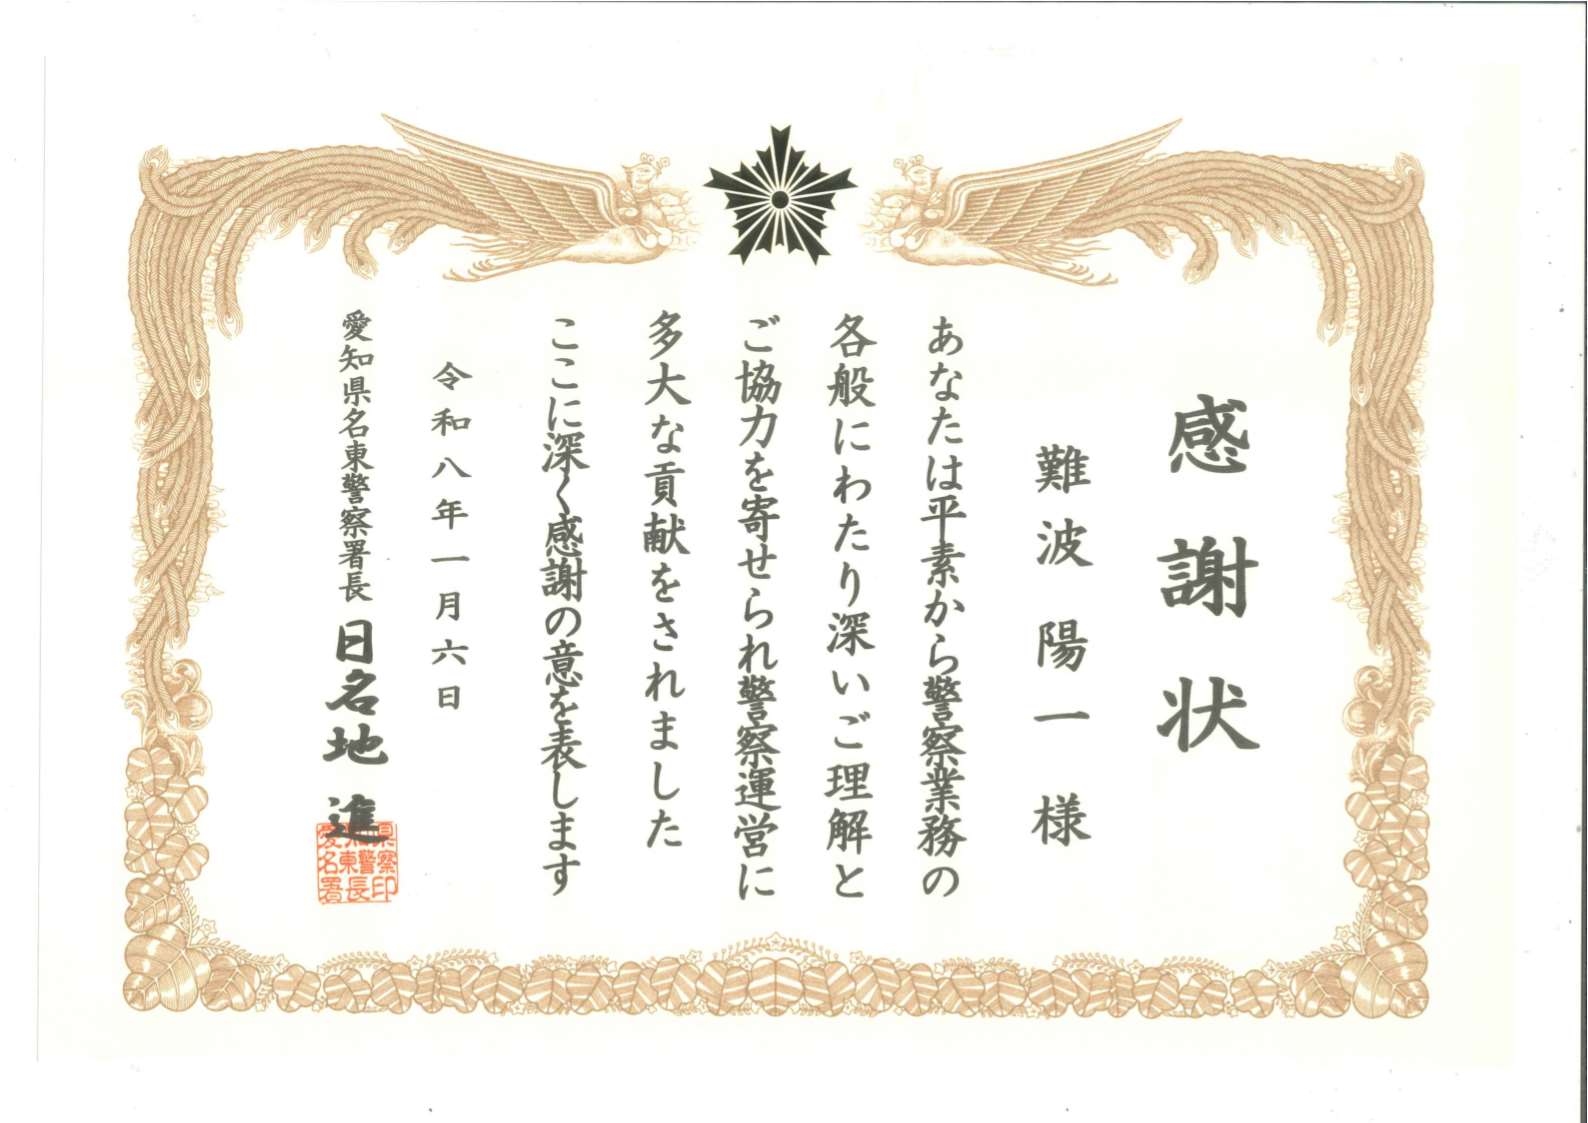 感謝状
難波陽一様
あなたは平素から警察業務の
各般にわたり深いご理解と
ご協力を寄せられ警察運営に
多大な貢献をされました
ここに深く感謝の意を表します
令和八年一月六日
愛知県名東警察署長 日名地進